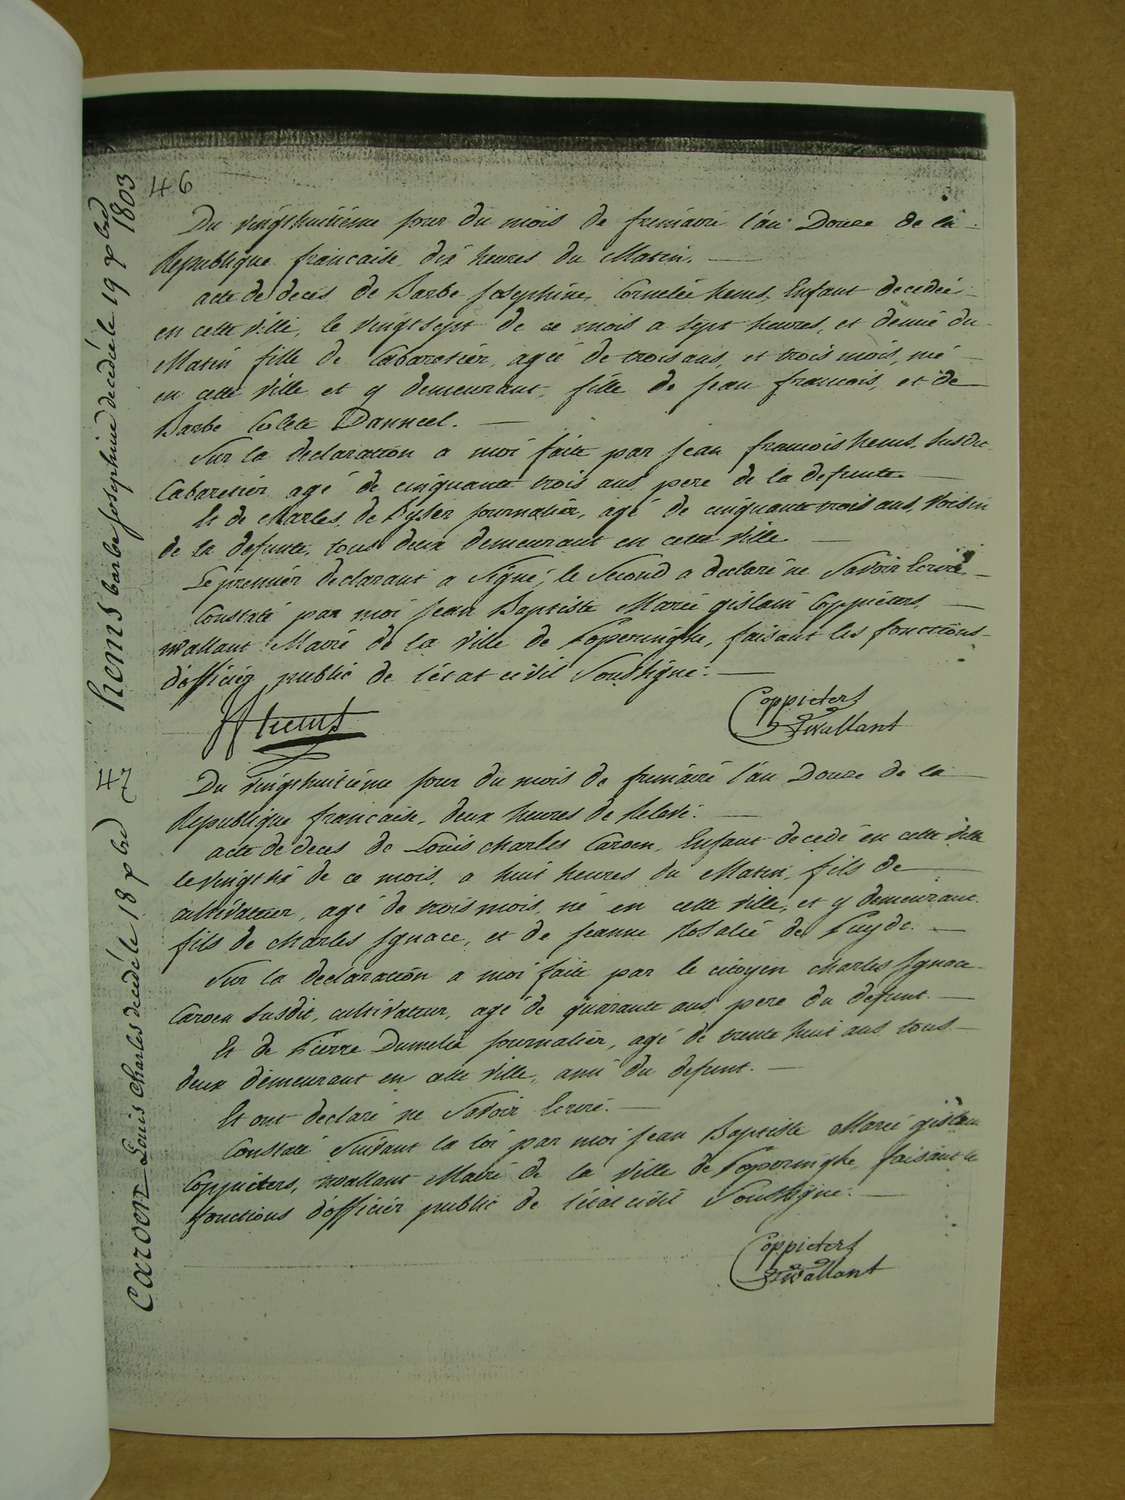 46
hems barbe Josephine decedée le 19 xbre 1803
Du vingthuitieme jour du mois de frimaire l'an Douze de la
Republique francaise, dix heures du Matin.
acte de deces de Barbe Josephine, Cornelie hems, Enfant decedée
en cette ville, le vingtsept de ce mois a sept heures, et demie du
Matin fille de Cabaretier, agée de trois ans, et trois mois, née
en cette ville et y demeurant, fille de jean francois, et de
Barbe Colete Danneel.
Sur la declaration a moi faite par jean francois hems, susdit
Cabaretier agé de cinquante trois ans pere de la defunte
Et de charles de journalier, agé de cinquante trois ans, voisin
de la defunte, tous deux demeurant en cette ville
Le premier declarant a signé, le second a declaré ne savoir Ecrire
Constaté par moi jean Baptiste Marie gislain Coppieters
wallant Maire de la ville de Poperinghe, faisant les fonctions
d'officier public de l'état civil soussigné.
hems
Coppieters
Twallant
47
Caroen Louis Charles decédé le 18 xbre
Du vingthuitieme jour du mois de frimaire l'an Douze de la
Republique francaise, deux heures de relevé.
acte de deces de Louis charles Caroen, Enfant decedé en cette ville
le vingtsix de ce mois, a huit heures du Matin, fils de
cultivateur, agé de trois mois, né en cette ville, et y demeurant
fils de charles Ignace, et de jeanne Rosalie de Puydt.
Sur la declaration a moi faite par le citoyen charles Ignace
Caroen susdit, cultivateur, agé de quarante ans pere du defunt.
Et de Pierre Dumelie journalier, agé de trente huit ans tous
deux demeurant en cette ville, ami du defunt.
Et ont declaré ne savoir Ecrire.
Constaté suivant la loi par moi jean Baptiste Marie gislain
Coppieters, wallant Maire de la ville de Poperinghe, faisant le
fonctions d'officier public de l'état civil soussigné.
Coppieters
Twallant